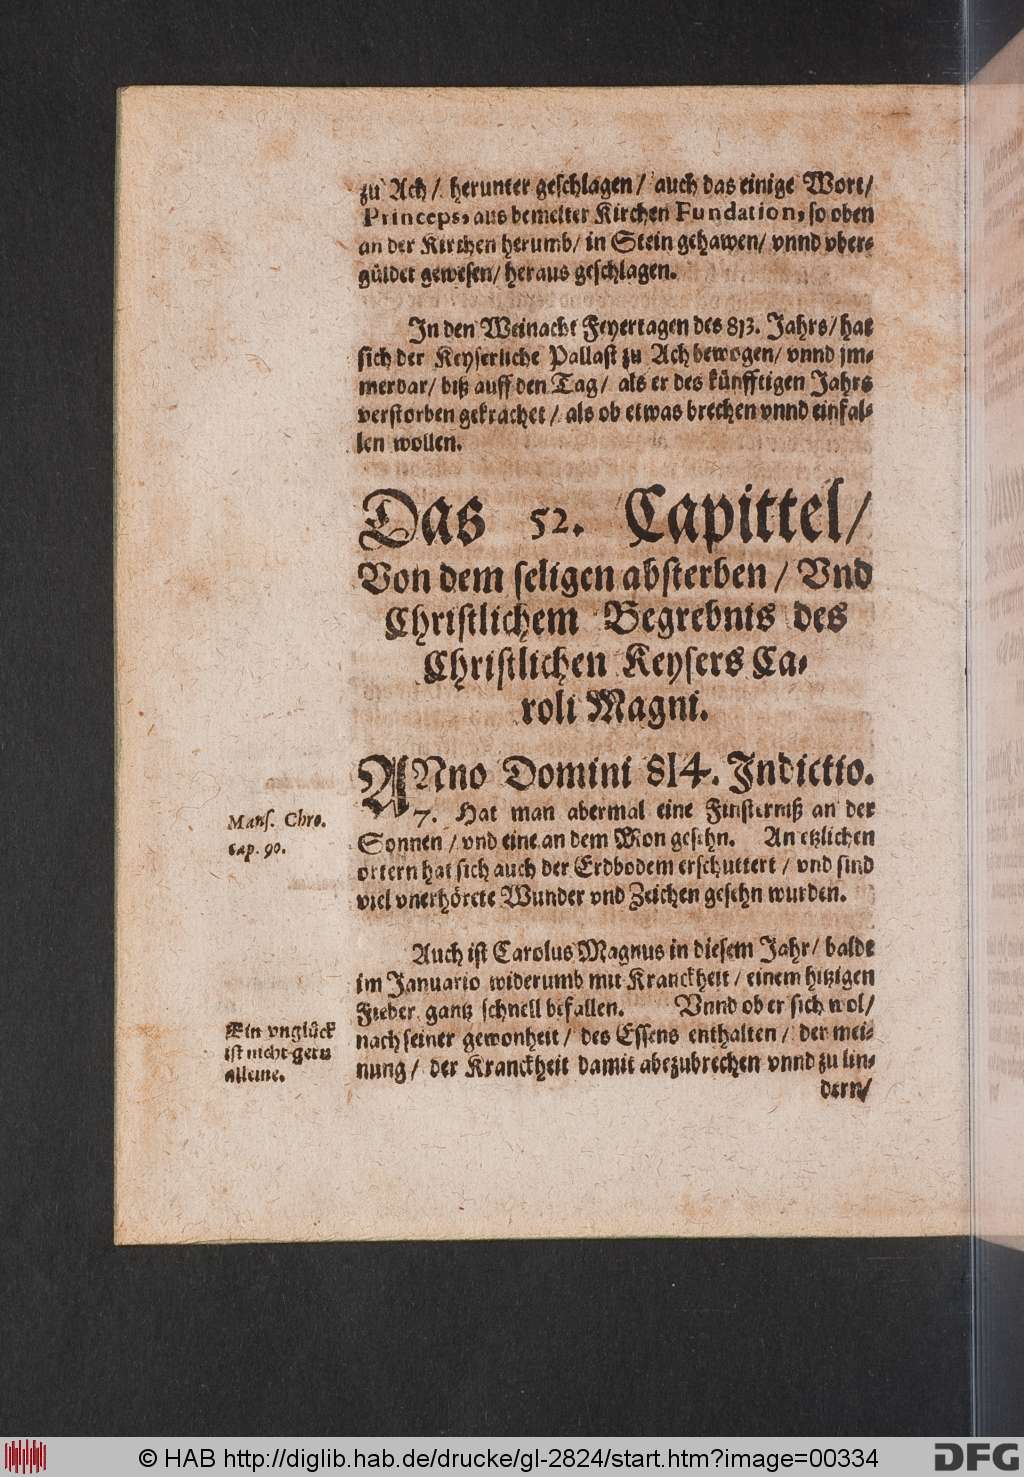 zu Ach/ herunter geschlagen/ auch das einige Wort/
Princeps, aus bemelter Kirchen Fundation, so oben
an der Kirchen herumb/ in Stein gehawen/ vnnd vber-
güldet gewesen/ heraus geschlagen.
In den Weinacht Feyertagen des 813. Jahrs/ hat
sich der Keyserliche Pallast zu Ach bewogen/ vnnd jm-
merdar/ biß auff den Tag/ als er des künfftigen Jahrs
verstorben gekrachet/ als ob etwas brechen vnnd einfal-
len wollen.
Das 52. Capittel/
Von dem seligen absterben/ Vnd
Christlichem Begrebnis des
Christlichen Keysers Ca-
roli Magni.
ANno Domini 814. Indictio.
7. Hat man abermal eine Finsterniß an der
Mans. Chro.
cap. 90.
Sonnen/ vnd eine an dem Mon gesehn. An etzlichen
ortern hat sich auch der Erdbodem erschuttert/ vnd sind
viel vnerhörete Wunder vnd Zeichen gesehn wurden.
Auch ist Carolus Magnus in diesem Jahr/ balde
im Januario widerumb mit Kranckheit/ einem hitzigen
Fieber, gantz schnell befallen. Vnnd ob er sich wol/
Ein vnglück
ist nicht gern
alleine.
nach seiner gewonheit/ des Essens enthalten/ der mei-
nung/ der Kranckheit damit abezubrechen vnnd zu lin-
dern/
© HAB http://diglib.hab.de/drucke/gl-2824/start.htm?image=00334
DFG